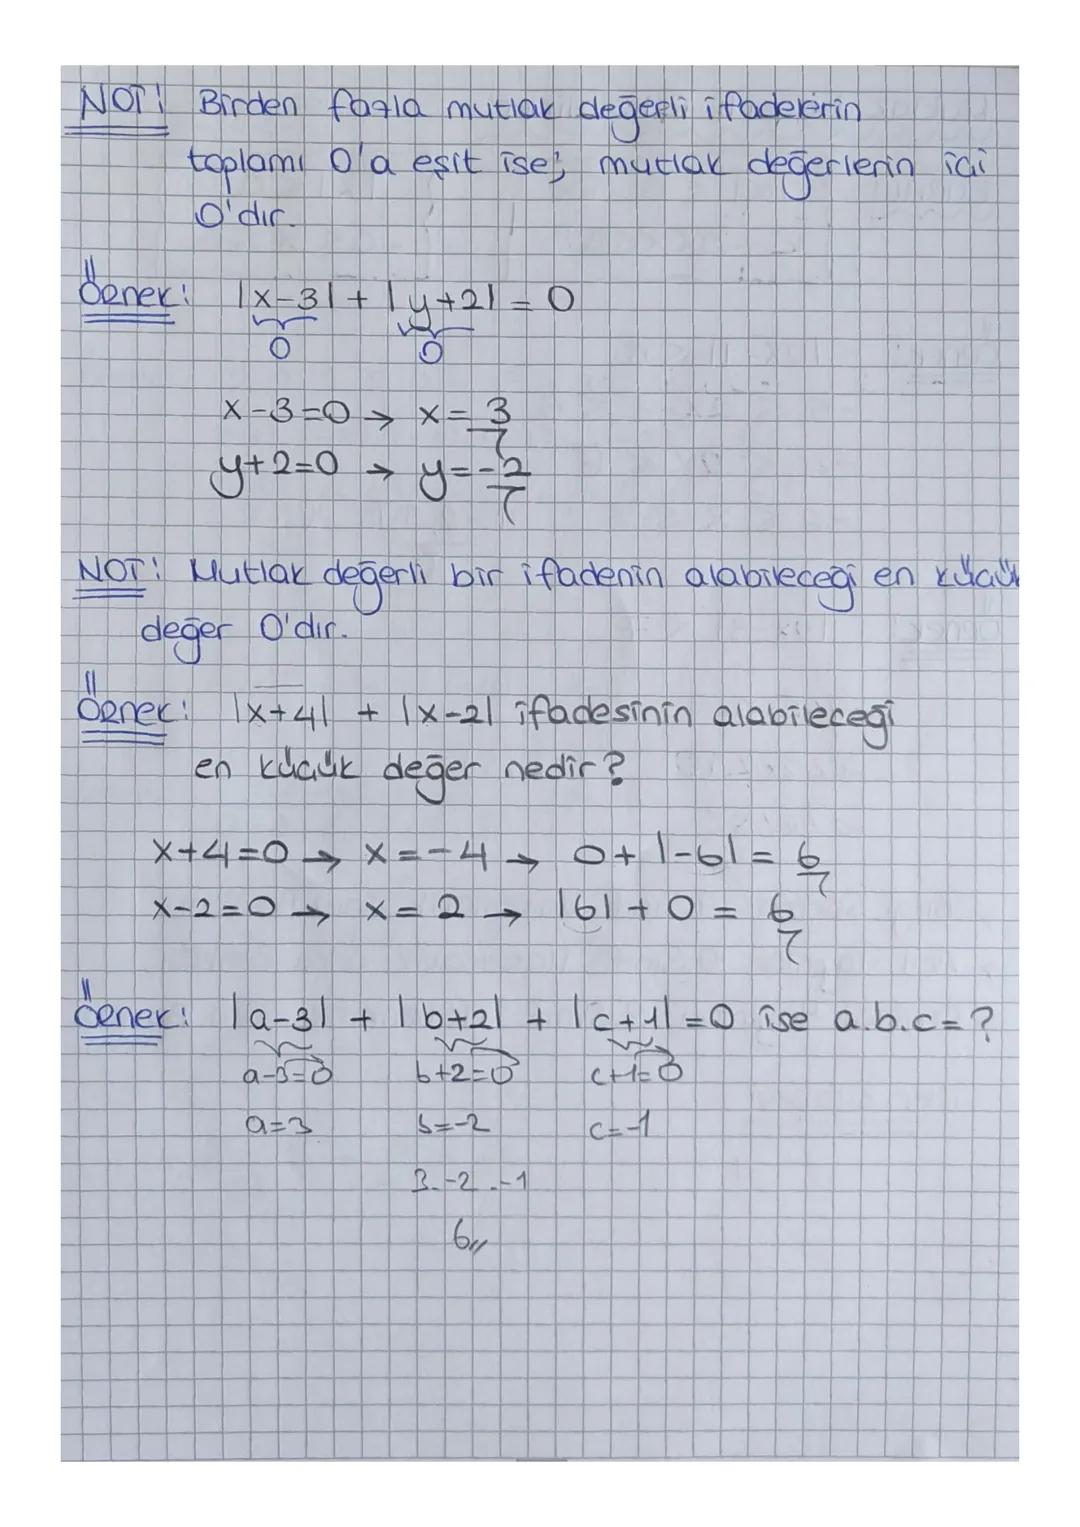 NOT! Birden fazla mutlak değerli ifadelerin
toplamı 0'a eşit ise; mutlak değerlerin içi
0'dır.
Örnek: |x-3| + |y+2| = 0
0 0
x-3=0 → x=3
y+2=0 → y=-2
NOT! Mutlak değerli bir ifadenin alabileceği en küçük
değer 0'dır.
Örnek: |x+4| + |x-2| ifadesinin alabileceği
en küçük değer nedir?
x+4=0 → x=-4 → 0+|-6| = 6
x-2=0 → x=2 → |6|+0 = 6
Örnek: |a-3| + |b+2| + |c+1|=0 ise a.b.c=?
a-3=0 b+2=0 c+1=0
a=3 b=-2 c=-1
3.-2.-1
6//